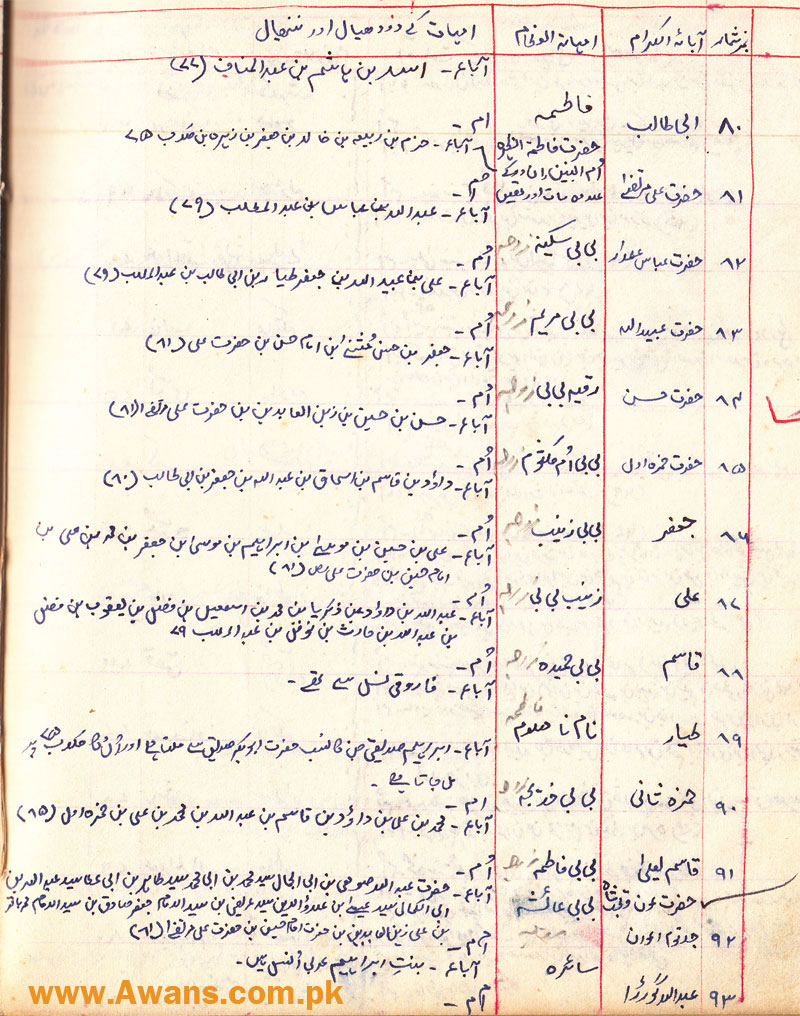 نمبر شمار آبائہ الکرام امہاتہ العظام امہات کے ددھیال اور ننھیال
آباء - اسد بن ہاشم بن عبدالمناف (۷۷)
۸۰ ابی طالب فاطمہ ام -
حضرت فاطمۃ
آباء - حزم بن ربیعہ بن خالد بن جعفر بن
ام البنین
۸۱ حضرت علی مرتضےٰ اُم -
آباء - عبداللہ بن عباس بن عبدالمطلب (۷۹)
۸۲ حضرت عباس علمدار بی بی سکینہ زوجہ اُم -
آباء - علی بن عبید اللہ بن جعفر طیار بن ابی طالب بن عبدالمطلب (۷۹)
۸۳ حضرت عبیداللہ بی بی مریم زوجہ اُم -
آباء - جعفر بن حسن مُثنےٰ ابن امام حسن بن حضرت علی (۸۱)
۸۴ حضرت حسن رقیہ بی بی زوجہ اُم -
آباء - حسن بن حسین بن زین العابدین بن حضرت علی مرتضےٰ (۸۱)
۸۵ حضرت حمزہ اول بی بی اُم کلثوم زوجہ اُم -
آباء - داؤد بن قاسم بن اسحاق بن عبداللہ بن جعفر بن ابی طالب (۸۰)
۸۶ جعفر بی بی زینب زوجہ اُم -
آباء - علی بن حسین بن موسےٰ ابن ابراہیم بن موسیٰ ابن جعفر بن محمد بن علی بن
امام حسین بن حضرت علی (۸۱)
۸۷ علی زینب بی بی زوجہ اُم -
آباء - عبداللہ بن داؤد بن ذکریا بن محمد بن اسمعیل بن فضل بن یعقوب بن فضل
بن عبداللہ بن حارث بن نوفل بن عبدالمطلب ۷۹
۸۸ قاسم بی بی حمیدہ زوجہ اُم -
آباء - فاروقی نسل سے تھے -
فاطمہ
۸۹ طیار نام نا معلوم
آباء - ابراہیم صدیقی جن کا نسب حضرت ابوبکر صدیق سے ملتا ہے اور اُن کا پر
مل جاتا ہے -
۹۰ حمزہ ثانی بی بی خدیجہ زوجہ ام -
آباء - محمد بن علی بن داؤد بن قاسم بن عبداللہ بن محمد بن علی بن حمزہ اول (۸۵)
۹۱ قاسم لیلیٰ بی بی فاطمہ زوجہ اُم -
آباء - حضرت عبداللہ صومعی بن ابی الجمال سید محمد بن ابی محمد سید طاہر بن ابی عطا سید عبداللہ بن
حضرت عون قطب شاہ بی بی عائشہ
ابی الکمال سید عیسےٰ بن علاؤالدین سید بن سید الامام جعفر صادق بن سید الامام محمد باقر
۹۲
بن علی زین العابدین بن حضرت امام حسین بن حضرت علی مرتضےٰ (۸۱)
اُم -
سائرہ آباء - بنتِ ابراہیم عربی النسل ہیں -
۹۳ عبداللہ گوڑڑا اُم -
www.Awans.com.pk